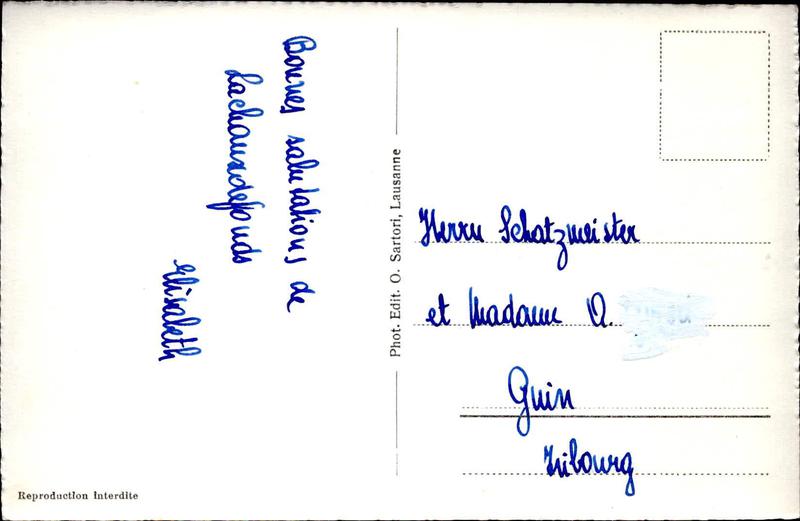 Bonnes salutations de
Lachauxdefonds
Elisabeth
Phot. Edit. O. Sartori, Lausanne
Herrn Schatzmeister
et Madame O.
Guin
Fribourg
Reproduction Interdite